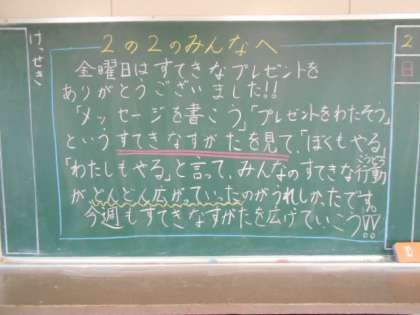 けっせき
2の2のみんなへ
金曜日はすてきなプレゼントを
ありがとうございました!!
「メッセージを書こう」「プレゼントをわたそう」
というすてきなすがたを見て、「ぼくもやる」
「わたしもやる」と言って、みんなのすてきな行動
こうどう
がどんどん広がっていったのがうれしかったです。
今週もすてきなすがたを広げていこう!!
2
日